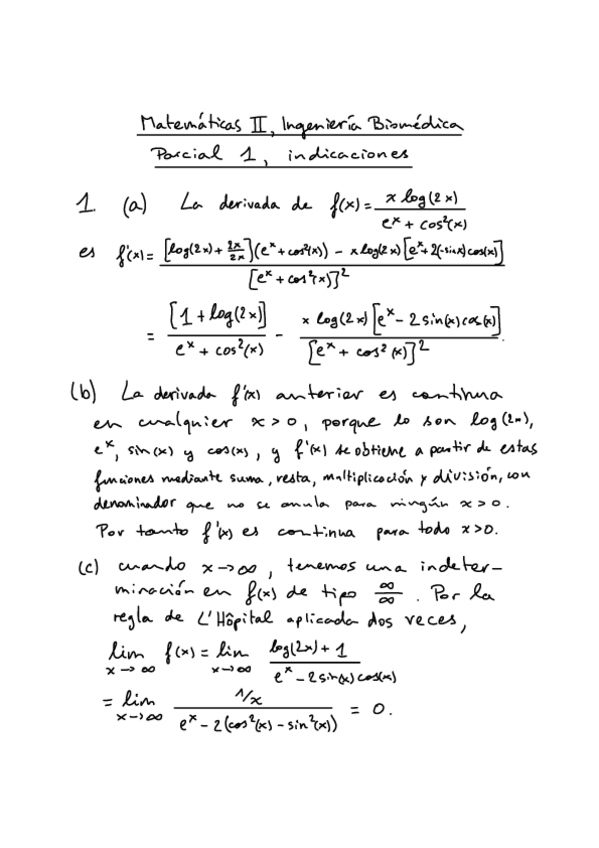 Matemáticas II, Ingeniería Biomédica
Parcial 1, indicaciones
1. (a) La derivada de f(x) = x log(2x) / (e^x + cos²(x))
es f'(x) = ([log(2x) + 2x/2x](e^x + cos²(x)) - x log(2x)[e^x + 2(-sin x)cos(x)]) / [e^x + cos²(x)]²
= [1 + log(2x)] / (e^x + cos²(x)) - x log(2x)[e^x - 2 sin(x) cos(x)] / [e^x + cos²(x)]².
(b) La derivada f'(x) anterior es continua
en cualquier x > 0, porque lo son log(2x),
e^x, sin(x) y cos(x), y f'(x) se obtiene a partir de estas
funciones mediante suma, resta, multiplicación y división, con
denominador que no se anula para ningún x > 0.
Por tanto f'(x) es continua para todo x > 0.
(c) cuando x → ∞, tenemos una indeter-
minación en f(x) de tipo ∞/∞. Por la
regla de L'Hôpital aplicada dos veces,
lim x→∞ f(x) = lim x→∞ (log(2x) + 1) / (e^x - 2 sin(x) cos(x))
= lim x→∞ (1/x) / (e^x - 2(cos²(x) - sin²(x))) = 0.